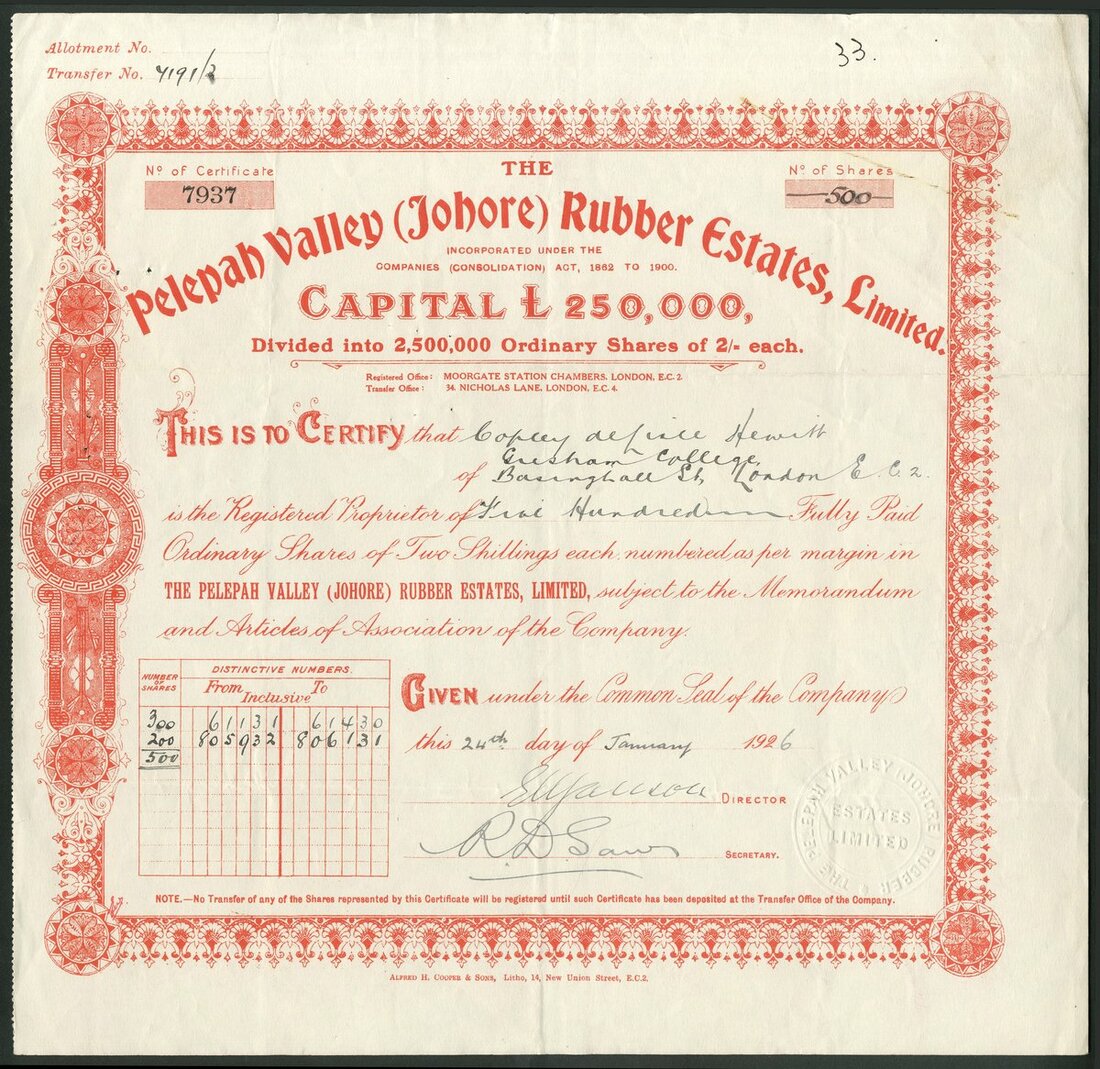 Allotment No.
Transfer No. 7191/2
33.
Nº of Certificate
7937
Nº of Shares
500
THE
Pelepah Valley (Johore) Rubber Estates, Limited.
INCORPORATED UNDER THE
COMPANIES (CONSOLIDATION) ACT, 1862 TO 1900.
CAPITAL £ 250,000,
Divided into 2,500,000 Ordinary Shares of 2/- each.
Registered Office: MOORGATE STATION CHAMBERS, LONDON, E.C. 2.
Transfer Office: 34, NICHOLAS LANE, LONDON, E.C. 4.
THIS IS TO CERTIFY that Copley Hewitt
Gresham College
of Basinghall St, London E.C.2.
is the Registered Proprietor of Five Hundred Fully Paid
Ordinary Shares of Two Shillings each, numbered as per margin in
THE PELEPAH VALLEY (JOHORE) RUBBER ESTATES, LIMITED, subject to the Memorandum
and Articles of Association of the Company.
NUMBER OF SHARES
DISTINCTIVE NUMBERS.
From Inclusive To
300 61131 61430
200 805932 806131
500
GIVEN under the Common Seal of the Company
this 24th day of January 1926
DIRECTOR
R.D. SECRETARY.
THE PELEPAH VALLEY (JOHORE) RUBBER
ESTATES
LIMITED
NOTE.—No Transfer of any of the Shares represented by this Certificate will be registered until such Certificate has been deposited at the Transfer Office of the Company.
ALFRED H. COOPER & SONS, Litho, 14, New Union Street, E.C.2.